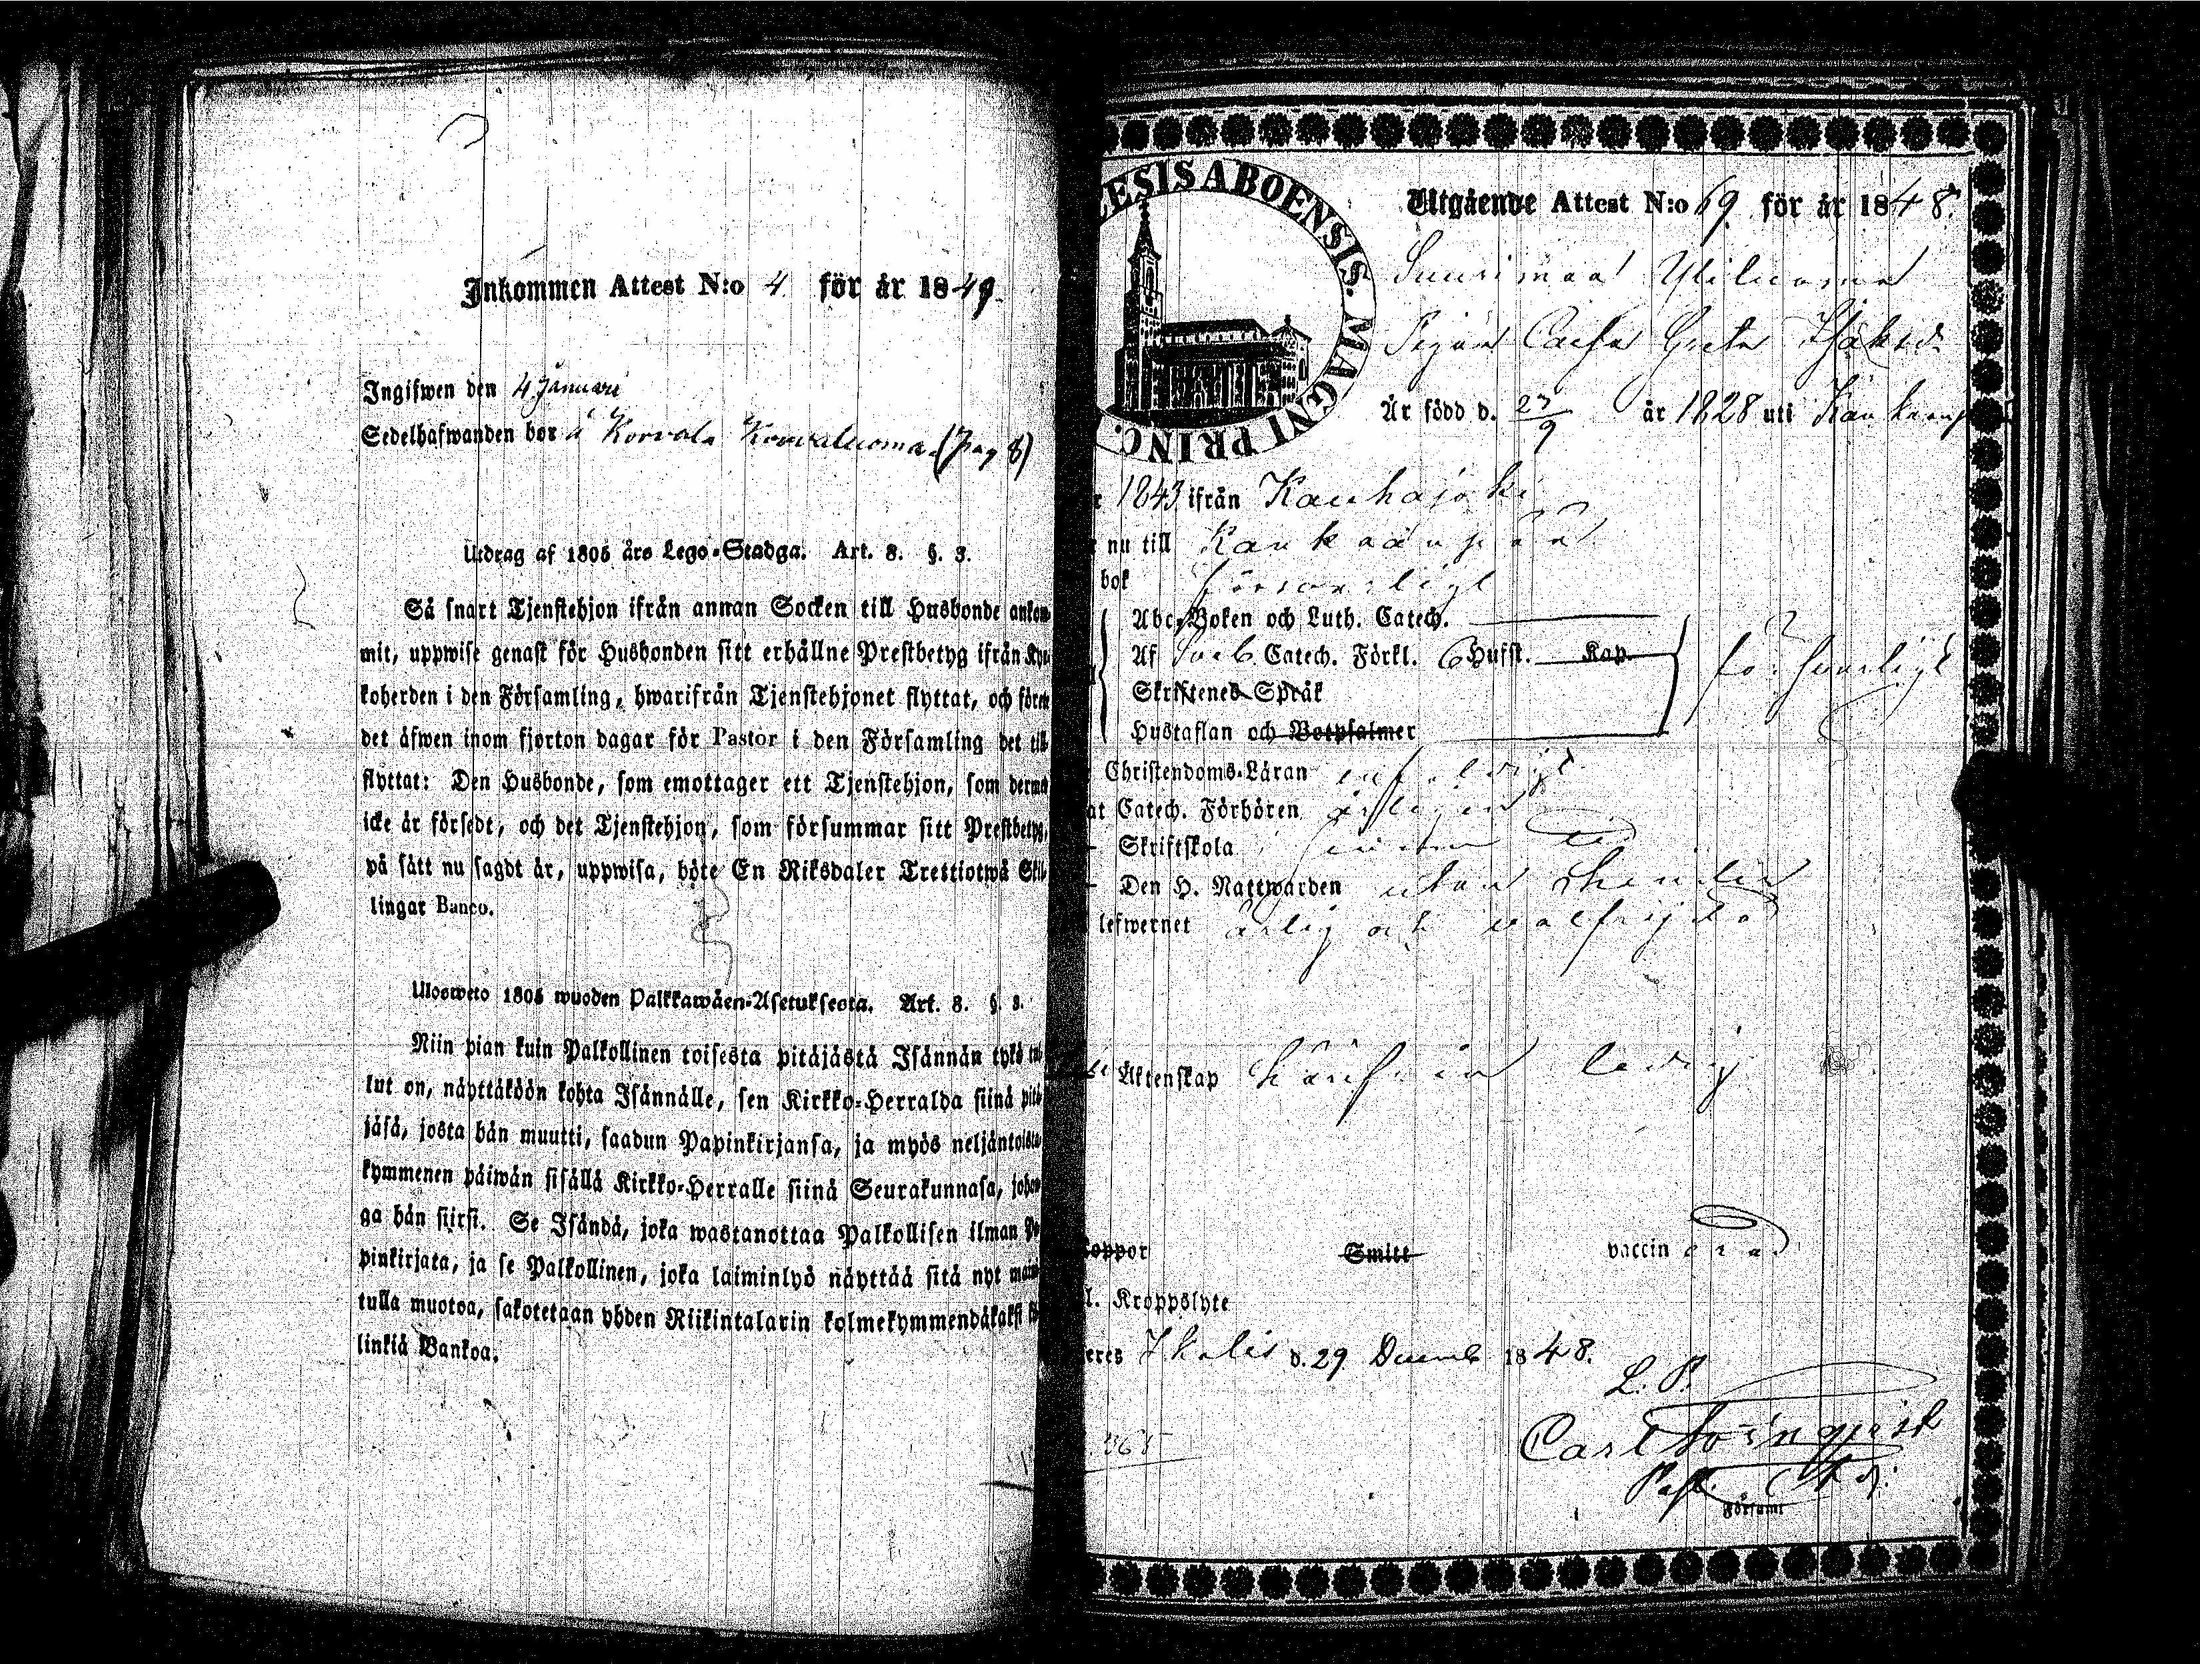 Inkommen Attest N:o 4. för år 1849.
Ingifwen den 4 Januari
Sedelhafwanden bor å Korvala Korvaluoma (Pag 8)
Utdrag af 1805 års Lego-Stadga. Art. 8. §. 3.
Så snart Tjenstehjon ifrån annan Socken till Husbonde ankom-
mit, uppwise genast för Husbonden sitt erhållne Prestbetyg ifrån Kyr-
koherden i den Församling, hwarifrån Tjenstehjonet flyttat, och förete
det äfwen inom fjorton dagar för Pastor i den Församling det till-
flyttat: Den Husbonde, som emottager ett Tjenstehjon, som dermed
icke är försedt, och det Tjenstehjon, som försummar sitt Prestbetyg,
på sätt nu sagdt är, uppwisa, böte En Riksdaler Trettiotwå Skil-
lingar Banco.
Ulosweto 1805 wuoden Palkkawäen-Asetuksesta. Art. 8. §. 3.
Niin pian kuin Palkollinen toisesta pitäjästä Isännän tykö tul-
lut on, näyttäköön kohta Isännälle, sen Kirkko-Herralda siinä pitä-
jäsä, josta hän muutti, saadun Papinkirjansa, ja myös neljäntoista-
kymmenen päiwän sisällä Kirkko-Herralle siinä Seurakunnasa, johon-
ga hän siirsi. Se Isändä, joka wastanottaa Palkollisen ilman Pa-
pinkirjata, ja se Palkollinen, joka laiminlyö näyttää sitä nyt maini-
tulla muotoa, sakotetaan yhden Riikintalarin kolmekymmendäkaksi kil-
linkiä Bankoa.
ESIS ABOENSIS. MAGNI PRINC.
Utgående Attest N:o 69. för år 1848.
Suurimaa Yliluoma
Pigan Cajsa Greta
Är född d. 27/9 år 1828 uti
1843 ifrån Kauhajoki
nu till Kankaanpää
bok försvarligt
Abc-Boken och Luth. Catech.
Af Sveb. Catech. Förkl. Husst. Kap. försvarligt
Skriftenes Språk
Hustaflan och Botpsalmer
Christendoms-Läran
at Catech. Förhören årligen
Skriftskola
Den H. Nattwarden utan
lefwernet ärlig och
Äktenskap ledig
Koppor Smitt vaccinerad
l. Kroppslyte
eres Ikalis d. 29 Decemb 1848.
L. P.
Carl
Past.
Församl